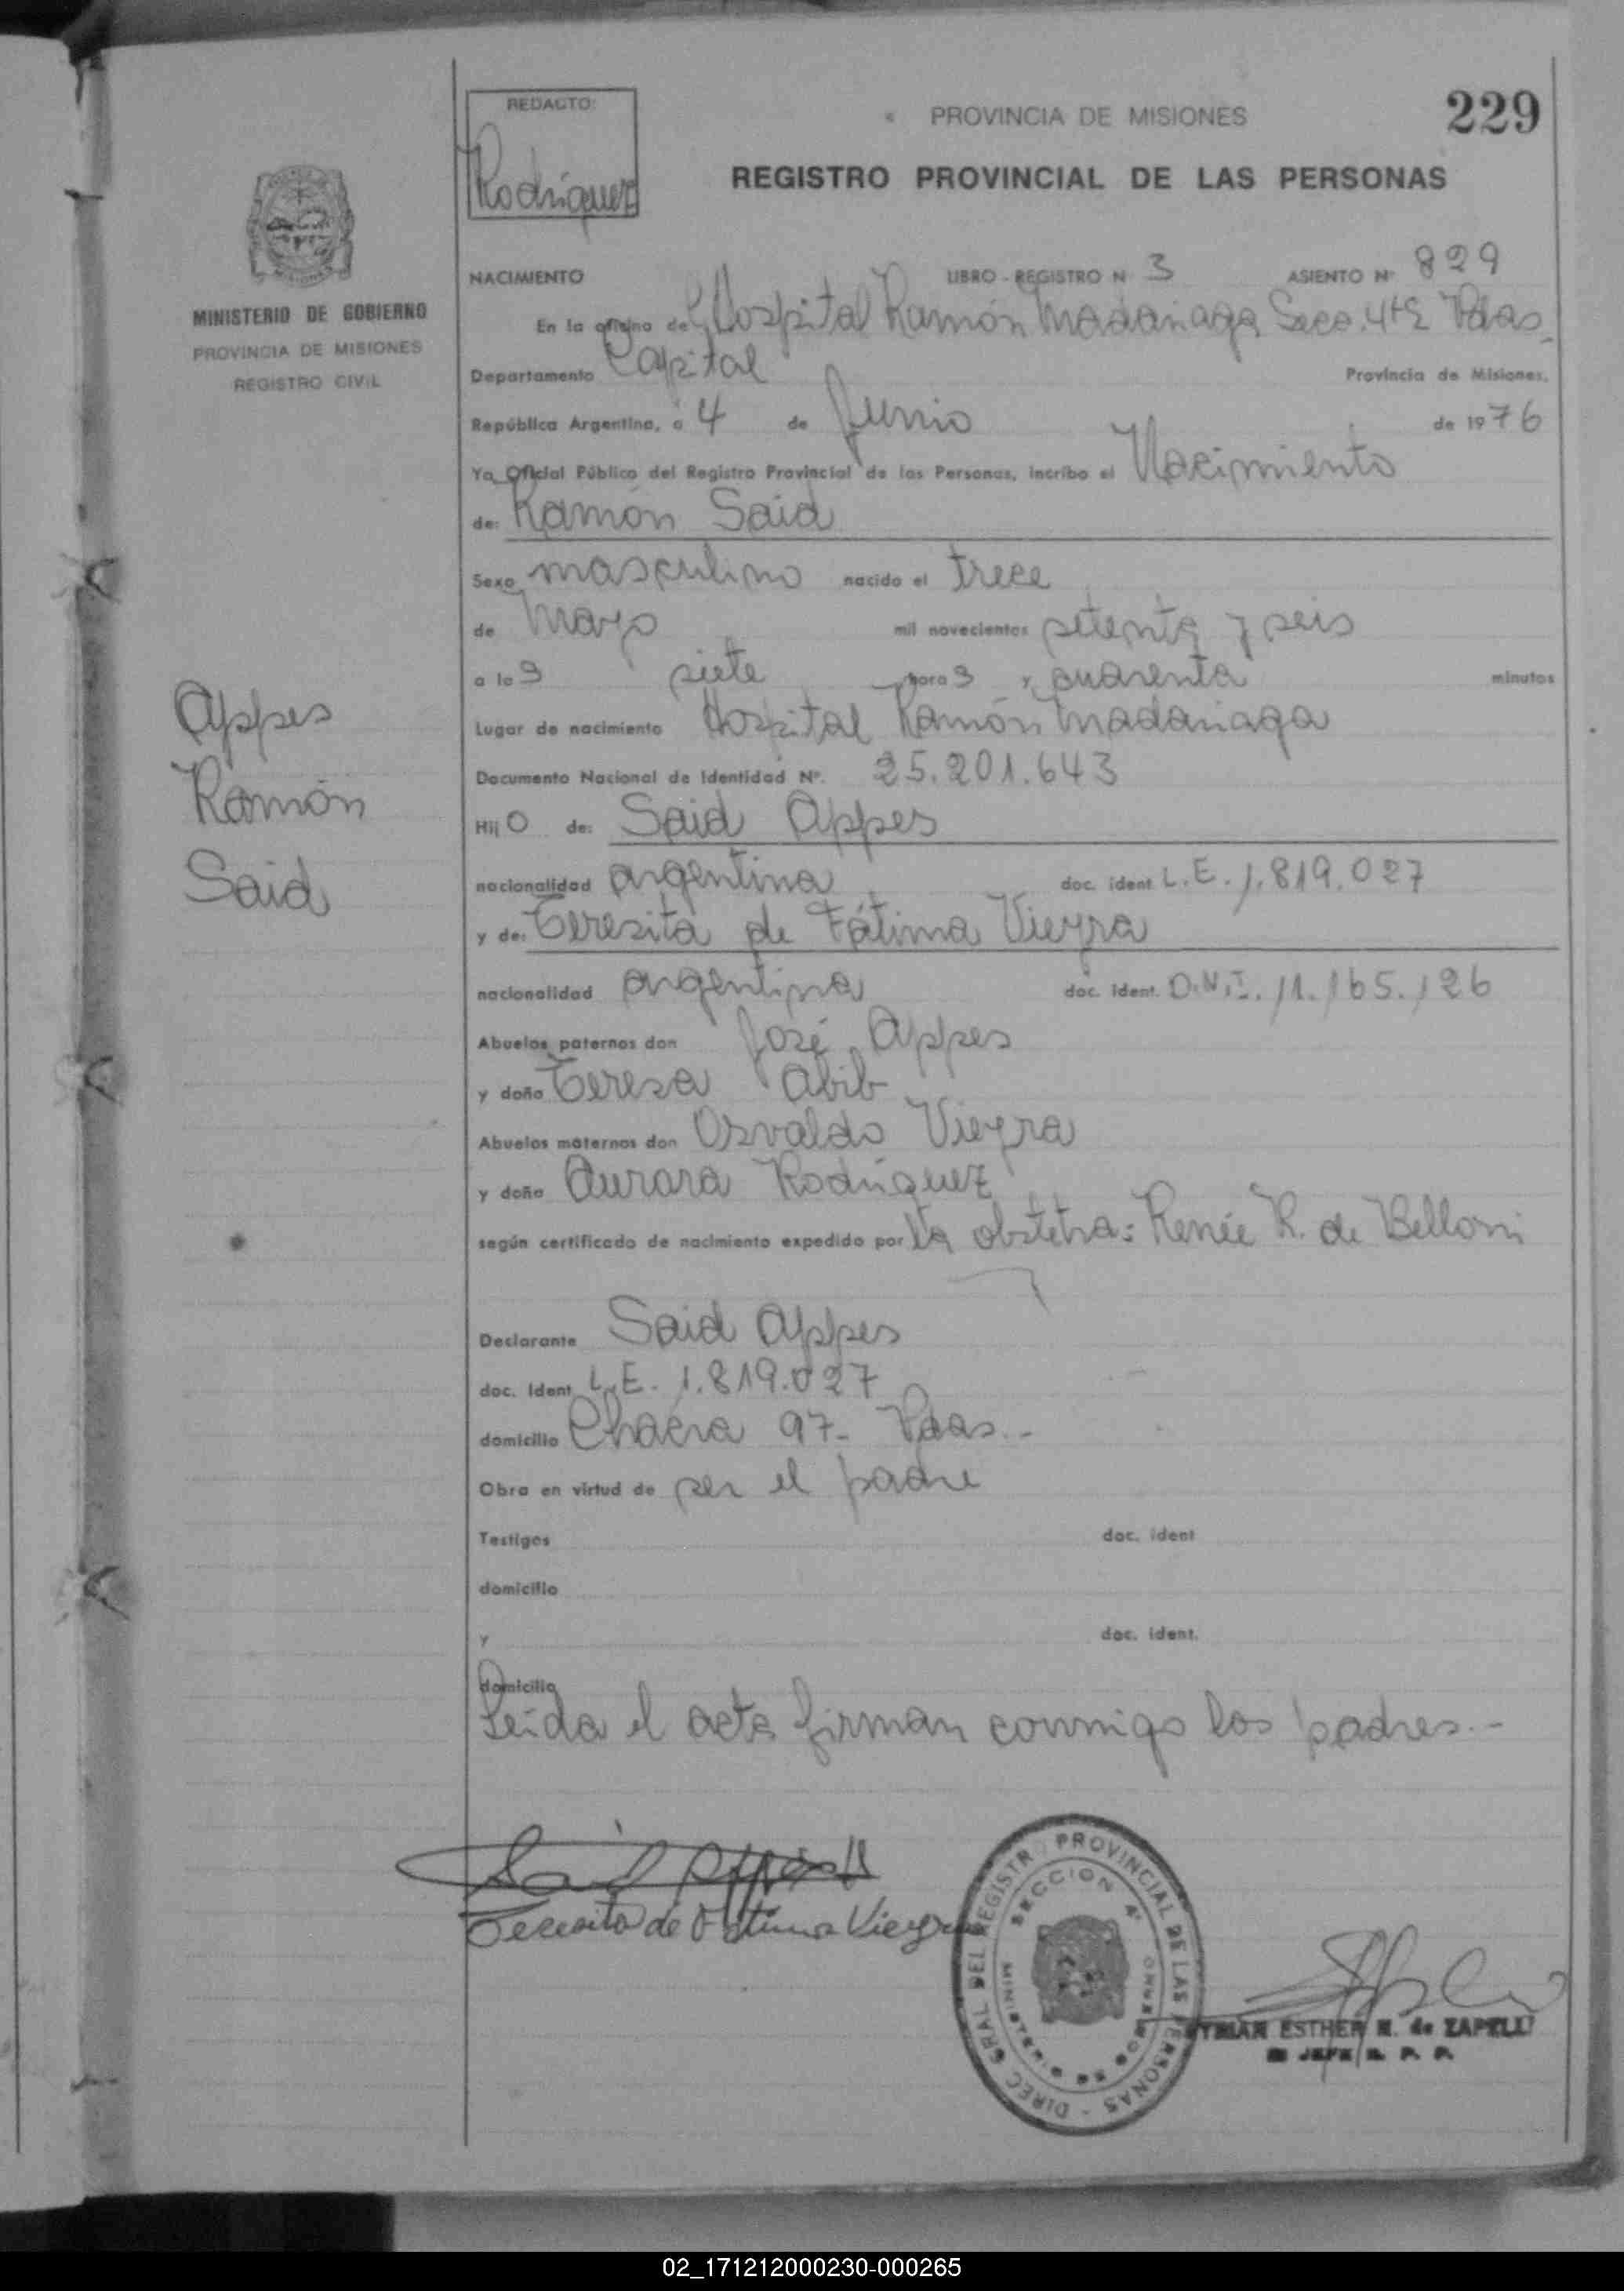 REDACTO:
Rodríguez
PROVINCIA DE MISIONES
229
REGISTRO PROVINCIAL DE LAS PERSONAS
MINISTERIO DE GOBIERNO
PROVINCIA DE MISIONES
REGISTRO CIVIL
NACIMIENTO LIBRO - REGISTRO N 3 ASIENTO Nº 829
En la oficina del Hospital Ramón Madariaga Secc. 4ta Pdas
Departamento Capital Provincia de Misiones,
República Argentina, a 4 de Junio de 1976
Yo Oficial Público del Registro Provincial de las Personas, incribo el Nacimiento
de: Ramón Said
Sexo masculino nacido el trece
de Mayo mil novecientos setenta y seis
a las siete horas y cuarenta minutos
Lugar de nacimiento Hospital Ramón Madariaga
Documento Nacional de Identidad Nº. 25.201.643
Hijo de: Said Appes
nacionalidad argentina doc. ident L.E. 1.819.027
y de: Teresita de Fátima Vieyra
nacionalidad argentina doc. ident. D.N.I. 11.165.126
Abuelos paternos don José Appes
y doña Teresa Abib
Abuelos maternos don Osvaldo Vieyra
y doña Aurora Rodríguez
según certificado de nacimiento expedido por la obstetra: Renée R. de Belloni
Appes
Ramón
Said
Declarante Said Appes
doc. Ident L.E. 1.819.027
domicilio Chacra 97- Pdas.-
Obra en virtud de ser el padre
Testigos doc. ident
domicilio
y doc. ident.
domicilio
Leida el acta firman conmigo los padres.-
Said Appes
Teresita de Fatima Vieyra
DIREC. GRAL DEL REGISTRO PROVINCIAL DE LAS PERSONAS -
SECCION 4ª
MINISTERIO DE GOBIERNO
ESTHER N. de ZAPELLI
JEFE R. P. P.
02_171212000230-000265